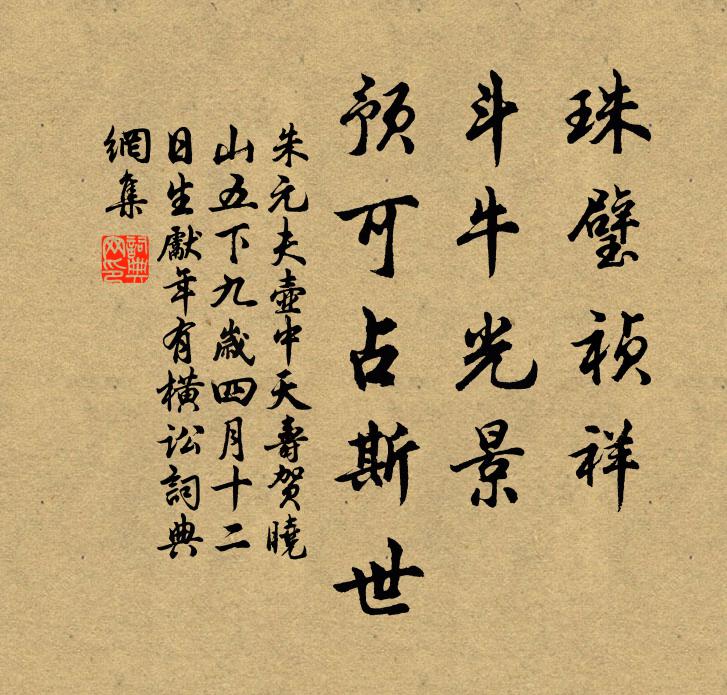 珠璧祯祥
斗牛光景
预可占斯世
朱元夫壺中天壽賀曉
山五下九歲四月十二
日生獻年有橫訟詞典
網集
詞典
网印